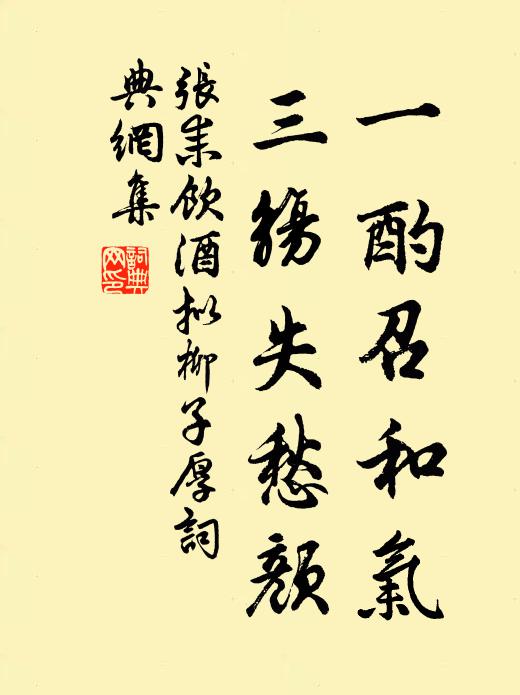 一酌召和氣
三觴失愁顏
張耒飲酒擬柳子厚詞
典網集
詞典
网印